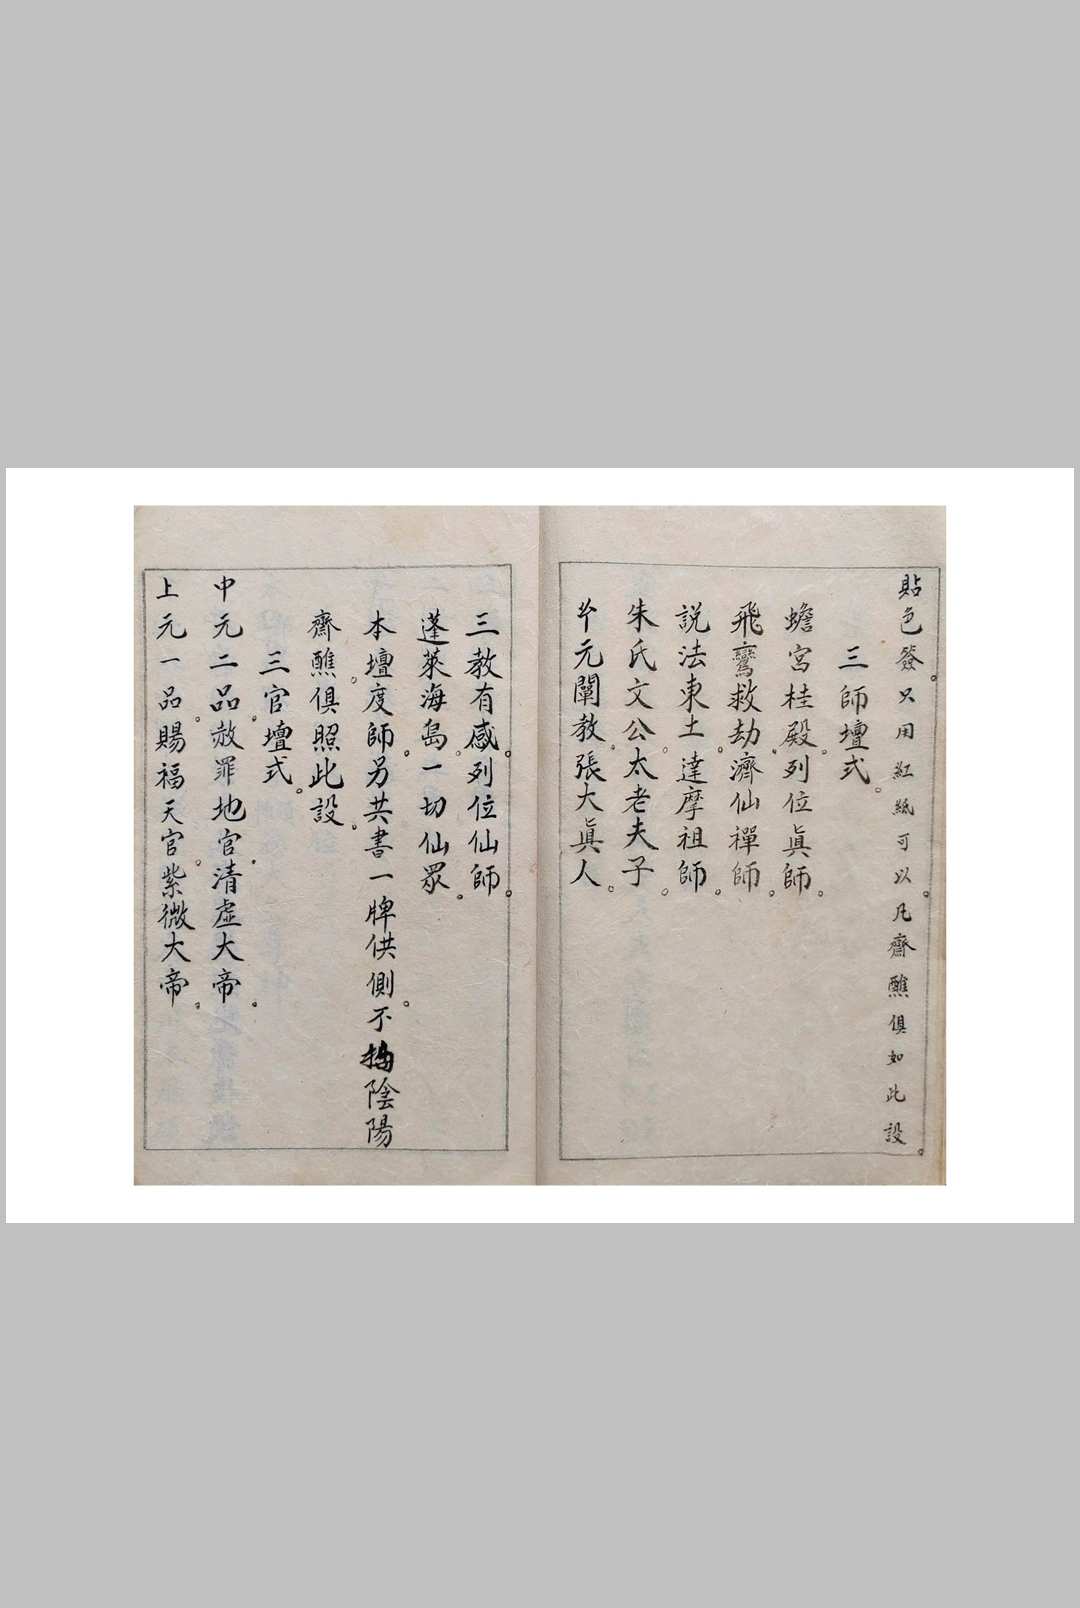 貼色簽。只用紅紙可以。凡齋醮俱如此設。
三師壇式。
蟾宮桂殿。列位眞師。
飛鸞救劫。濟仙禪師。
説法東土。達摩祖師。
朱氏文公。太老夫子。
元闡教。張大眞人。
三教有感。列位仙師。
蓬萊海島。一切仙眾。
本壇度師。另共書一牌供側。不 陰陽
齋醮。俱照此設。
三官壇式。
中元二品。赦罪地官。清虛大帝。
上元一品。賜福天官。紫微大帝。